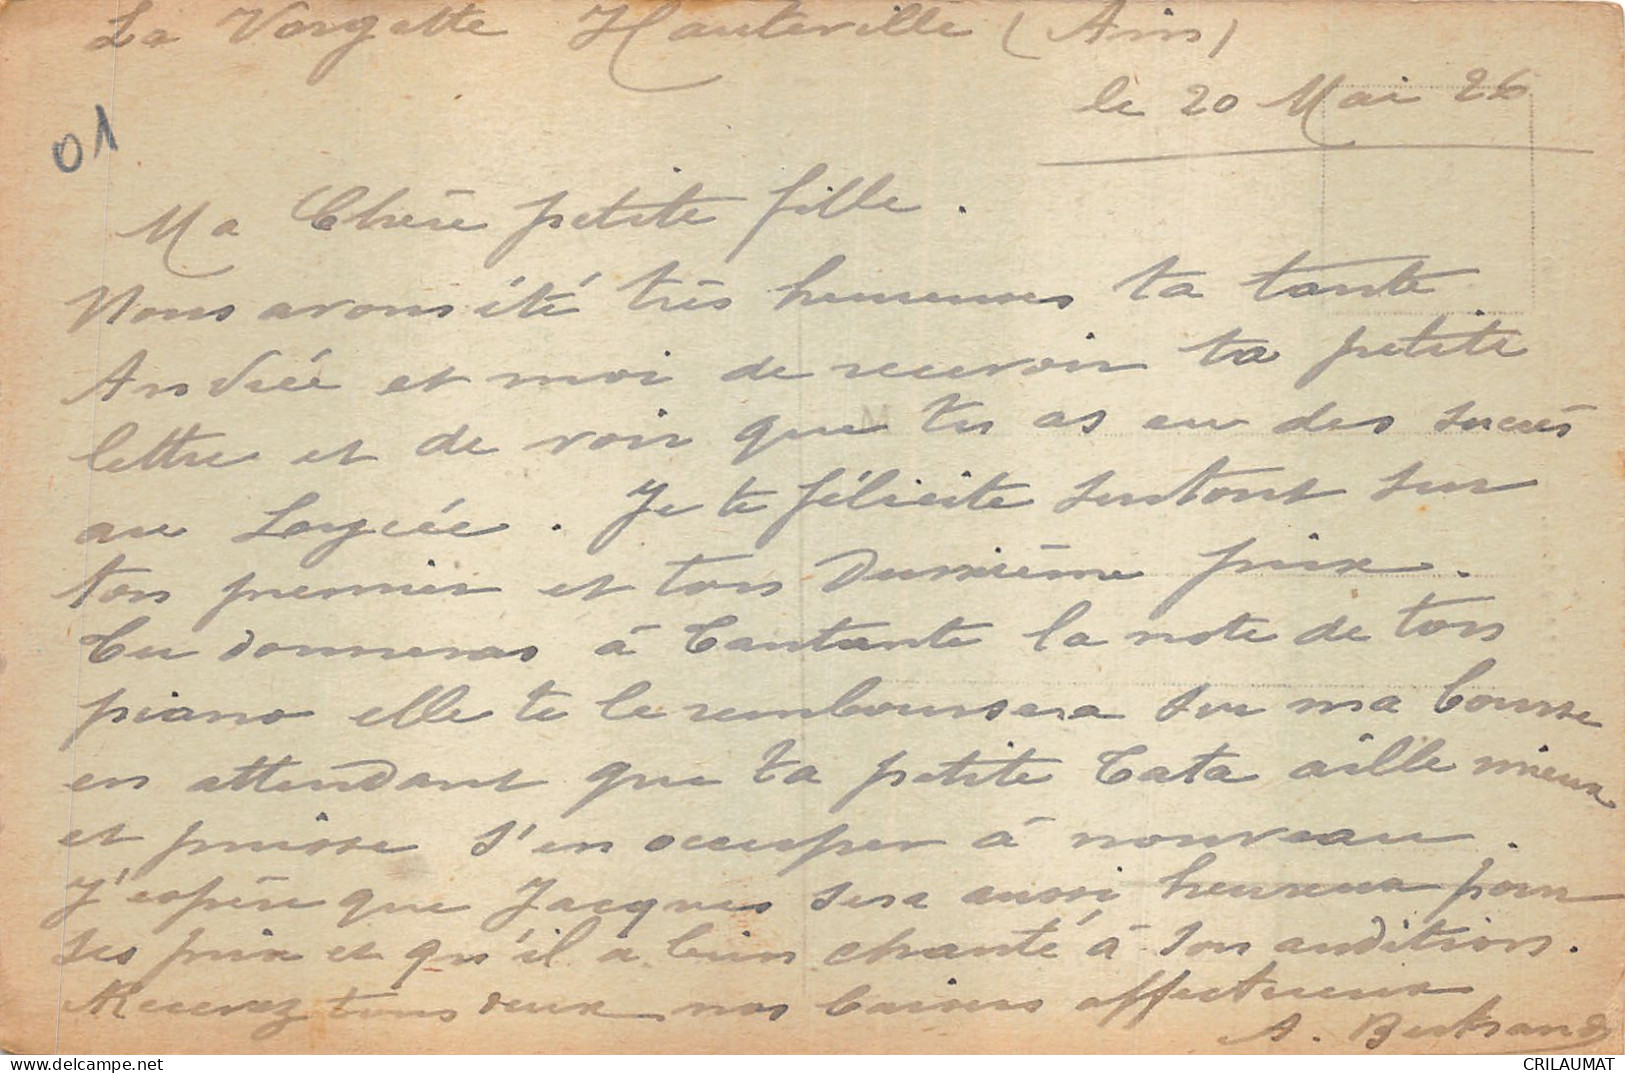 La Vorgette Hauteville (Ain)
le 20 Mai 26
01
Ma Chère petite fille.
Nous avons été très heureuses ta tante
Andrée et moi de recevoir ta petite
lettre et de voir que tu as eu des succès
au Loycée. Je te félicite surtout sur
ton premier et ton deuxième prix.
Tu donneras à Tantante la note de ton
piano elle te le remboursera sur ma bourse
en attendant que ta petite Tata aille mieux
et puisse s'en occuper à nouveau.
J'espère que Jacques sera aussi heureux pour
ses prix et qu'il a bien chanté à son audition.
Recevez tous deux nos baisers affectueux
A. Bertrand
CRILAUMAT